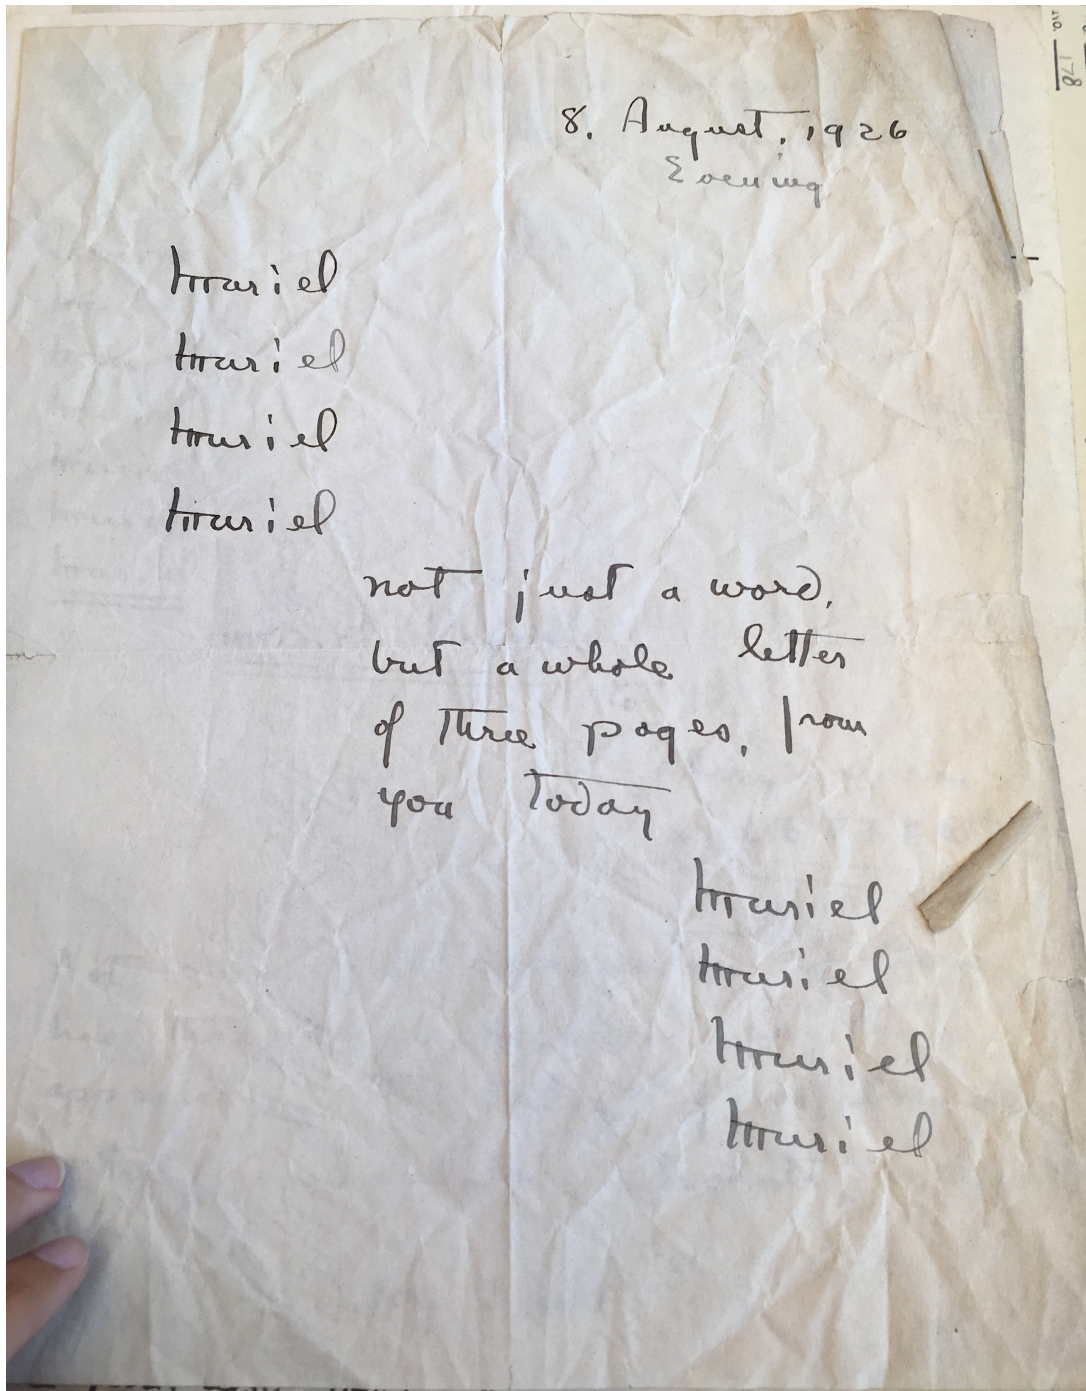 8. August, 1926
Evening
Muriel
Muriel
Muriel
Muriel
not just a word,
but a whole letter
of three pages, from
you today
Muriel
Muriel
Muriel
Muriel
178